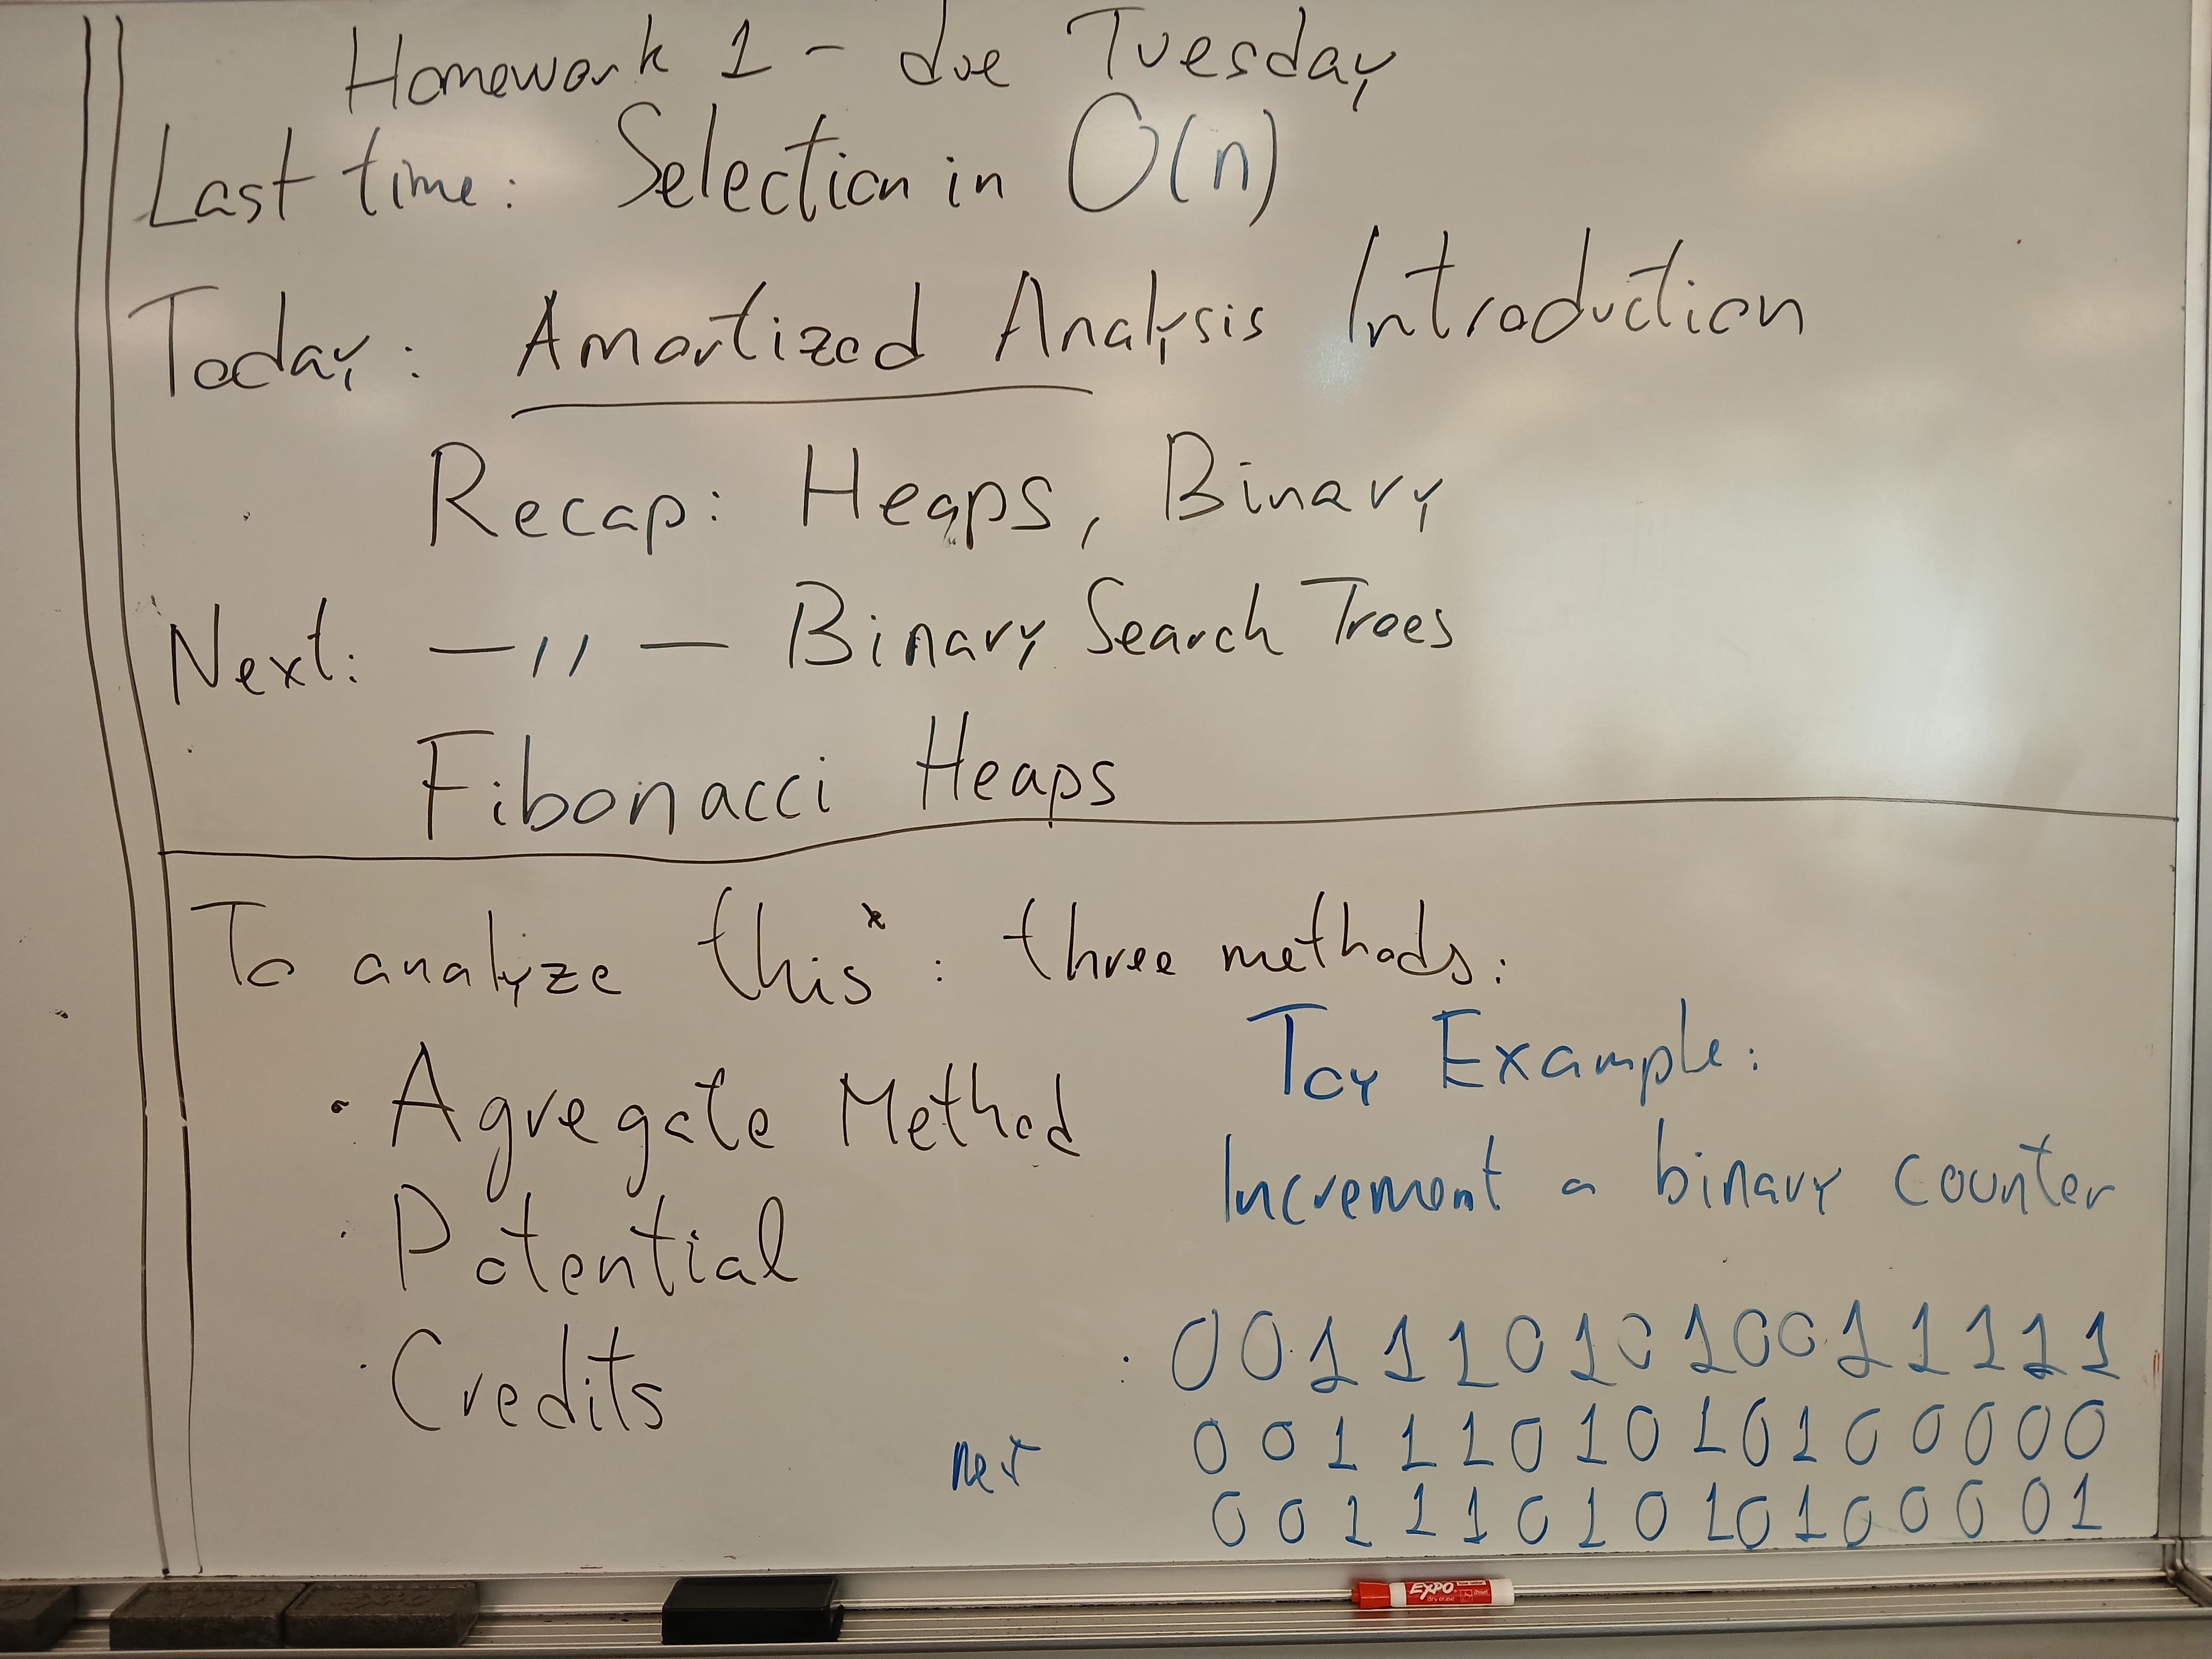 Homework 1 - due Tuesday
Last time: Selection in O(n)
Today: Amortized Analysis Introduction
Recap: Heaps, Binary
Next: — 〃 — Binary Search Trees
Fibonacci Heaps
To analyze this*: three methods:
• Agregate Method
• Potential
• Credits
Toy Example:
Increment a binary counter
: 0011101010011111
next 0011101010100000
0011101010100001
EXPO
dry erase